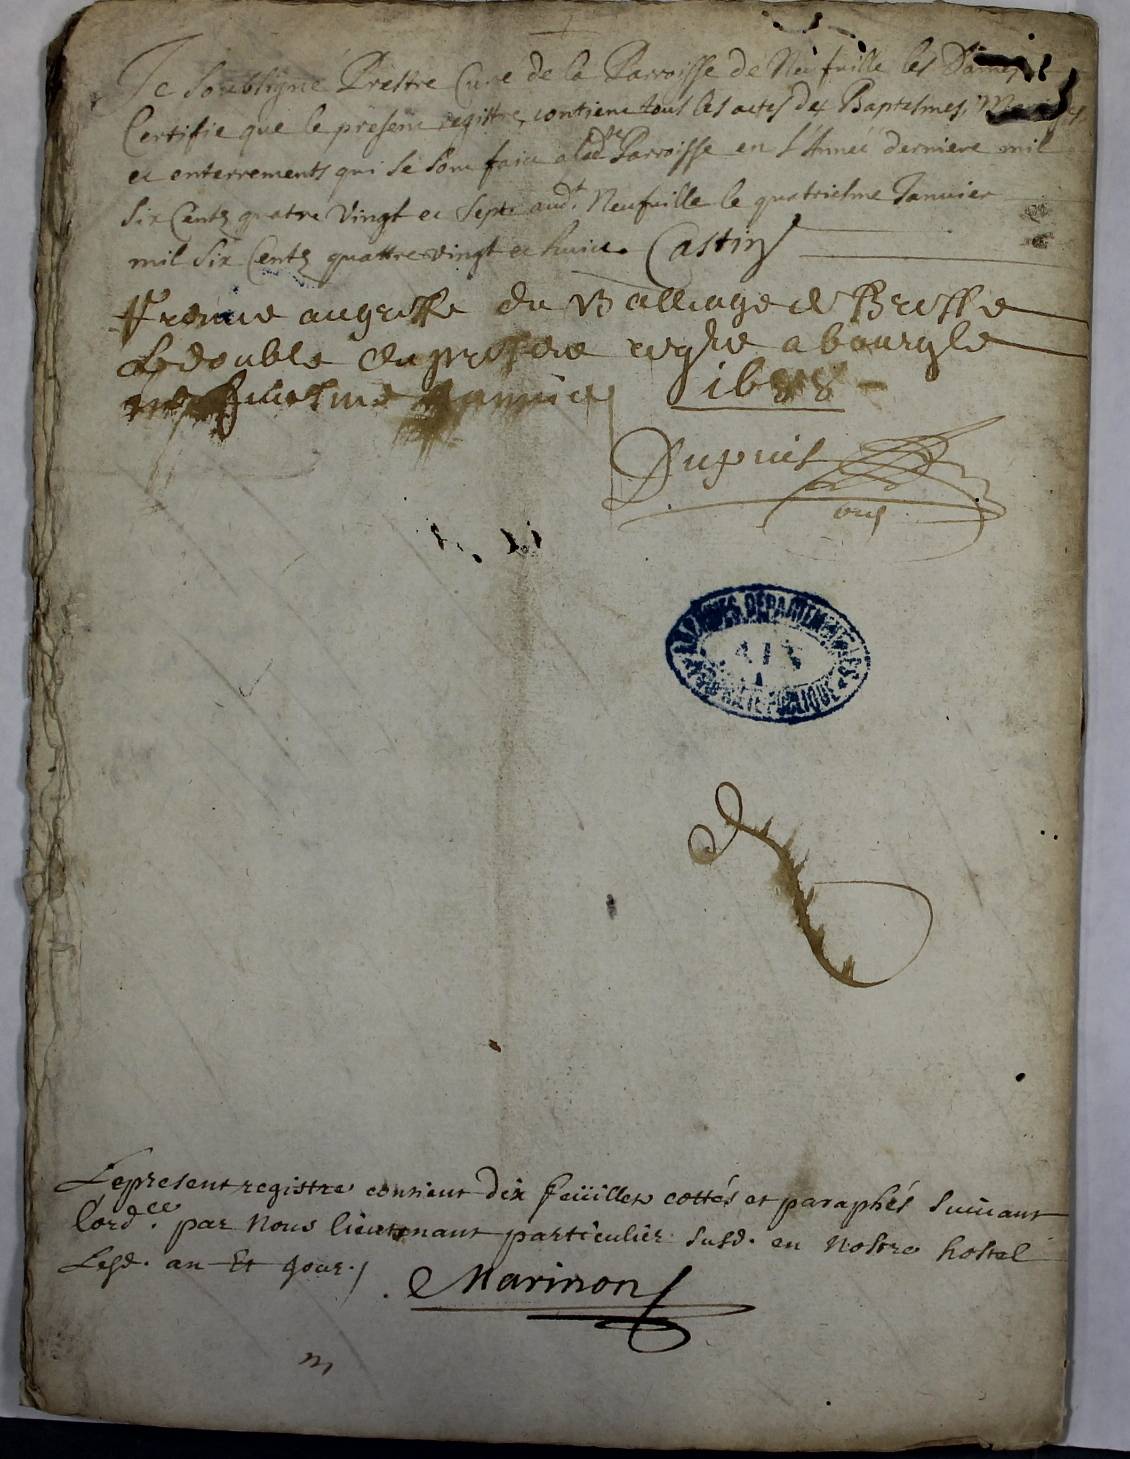 Je Soubsigné Prestre Curé de la Parroisse de Neufuille les Dames
Certifie que le present registre contient tous les actes des Baptesmes, Mariages
et enterrements qui se sont faict a lade Parroisse en l'Année derniere mil
Six Centz quatre vingt et Sept audt Neufuille le quatriesme Januier
mil Six Centz quattre vingt et huict Castin
au greffe du Balliage de Bresse
Le double du present a bourg le
Januier 1688
Dupuis
ARCHIVES DEPARTEMENTALES
AIN
Le present registre contient dix feüillets cottés et paraphés suiuant
lordce par Nous lieutenant particulier susd. en nostre hostel
Lesd. an Et jour.
Marinon